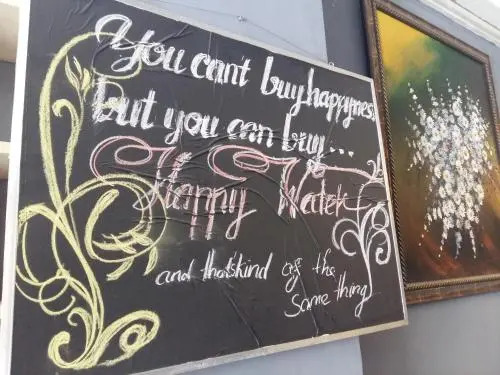 You cant buy happyness
but you can buy...
Happy Water
and thatskind of the
same thing